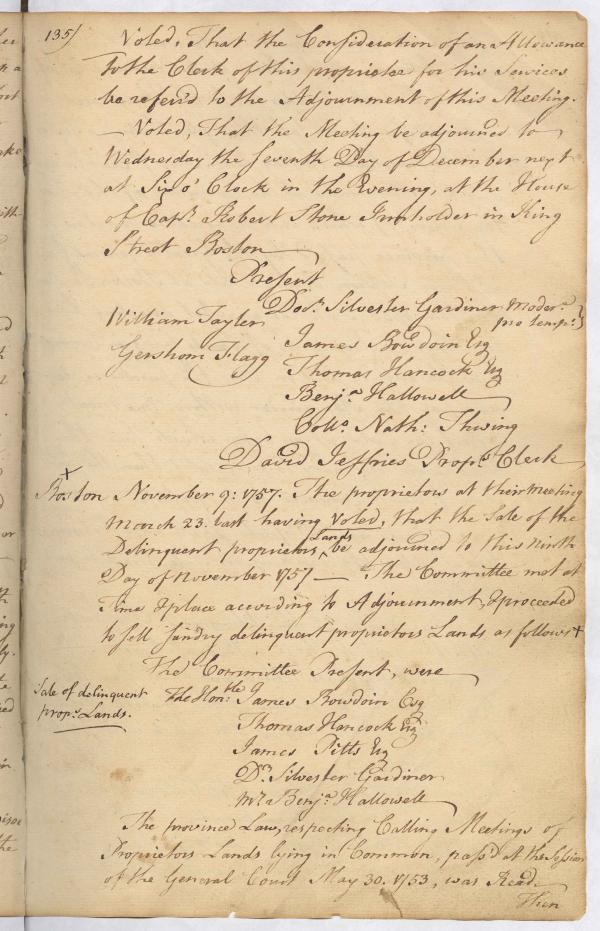 135/
Voted, That the Consideration of an Allowance
to the Clerk of this proprietee for his Services
be refer'd to the Adjournment of this Meeting.
— Voted, That the Meeting be adjourned to
Wednesday the Seventh Day of December next
at Six o' Clock in the Evening, at the House
of Capt. Robert Stone Innholder in King
Street Boston
Present
Docr. Silvester Gardiner Moder.r
pro temp.e }
William Tayler
James Bowdoin Esq
Gershom Flagg
Thomas Hancock Esq
Benja. Hallowell
Collo. Nath: Thwing
David Jeffries Props. Clerk
Boston November 9: 1757. The proprietors at their meeting
March 23. last having Voted, that the Sale of the
Delinquent proprietors Lands be adjourned to this ninth
Day of November 1757 — The Committee met at
Time & place according to Adjournment, & proceeded
to sell sundry delinquent proprietors Lands as follows +
The Committee Present, were
Sale of delinquent
props. Lands.
The Honble. James Bowdoin Esq
Thomas Hancock Esq
James Pitts Esq
Dr. Silvester Gardiner
Mr. Benja. Hallowell
The province Law, respecting Calling Meetings of
Proprietors Lands lying in Common, pass'd at the Session
of the General Court May 30. 1753, was Read.
Then